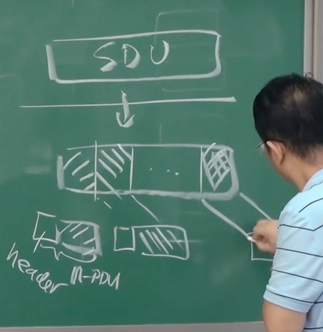 SDU
...
header n-PDU